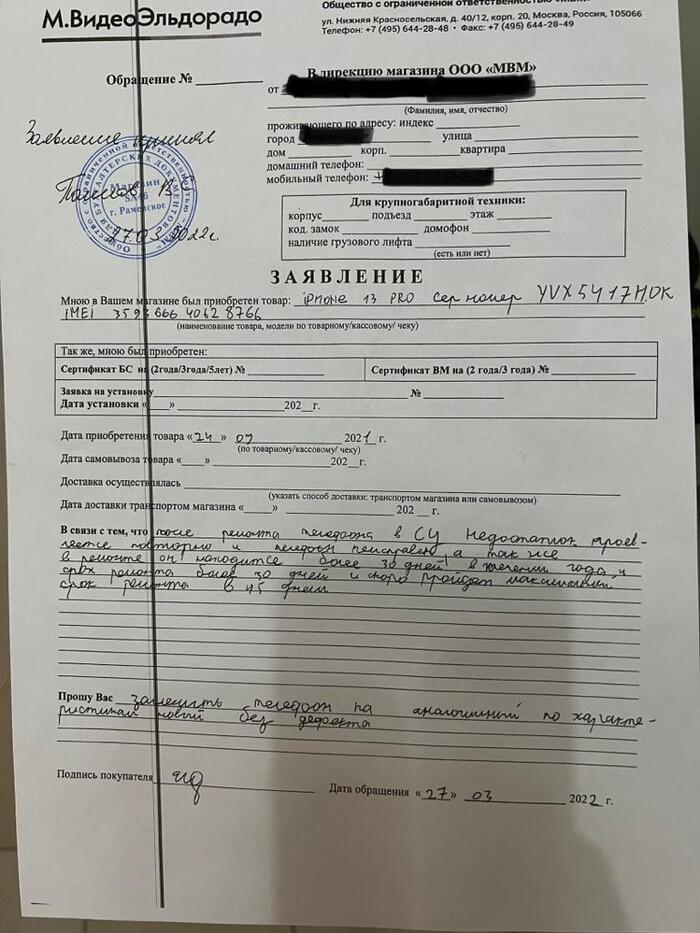 М.ВидеоЭльдорадо
Общество с ограниченной ответственностью
ул. Нижняя Красносельская, д. 40/12, корп. 20, Москва, Россия, 105066
Телефон: +7 (495) 644-28-48 • Факс: +7 (495) 644-28-49
Обращение №
В дирекцию магазина ООО «МВМ»
от
(Фамилия, имя, отчество)
проживающего по адресу: индекс
город улица
дом корп. квартира
домашний телефон:
мобильный телефон:
Заявление принял
Магазин
г. Раменское
27.03.2022г.
Для крупногабаритной техники:
корпус подъезд этаж
код. замок домофон
наличие грузового лифта
(есть или нет)
ЗАЯВЛЕНИЕ
Мною в Вашем магазине был приобретен товар: iPhone 13 PRO сер номер YVX5417MDK
IMEI 3593666 4062 8766
(наименование товара, модели по товарному/кассовому/ чеку)
Так же, мною был приобретен:
Сертификат БС на (2года/3года/5лет) № Сертификат ВМ на (2 года/3 года) №
Заявка на установку №
Дата установки «__» 202_г.
Дата приобретения товара «24» 09 2021 г.
(по товарному/кассовому/ чеку)
Дата самовывоза товара «__» 202_г.
Доставка осуществлялась
(указать способ доставки: транспортом магазина или самовывозом)
Дата доставки транспортом магазина «__» 202_ г.
В связи с тем, что после ремонта телефона в СЦ недостаток прояв-
ляется повторно и телефон неисправен, а так же
в ремонте он находится более 30 дней в течении года и
срок ремонта более 30 дней и скоро пройдет максимальный
срок ремонта в 45 дней
Прошу Вас заменить телефон на аналогичный по характе-
ристикам новый без дефекта
Подпись покупателя
Дата обращения «27» 03 2022 г.